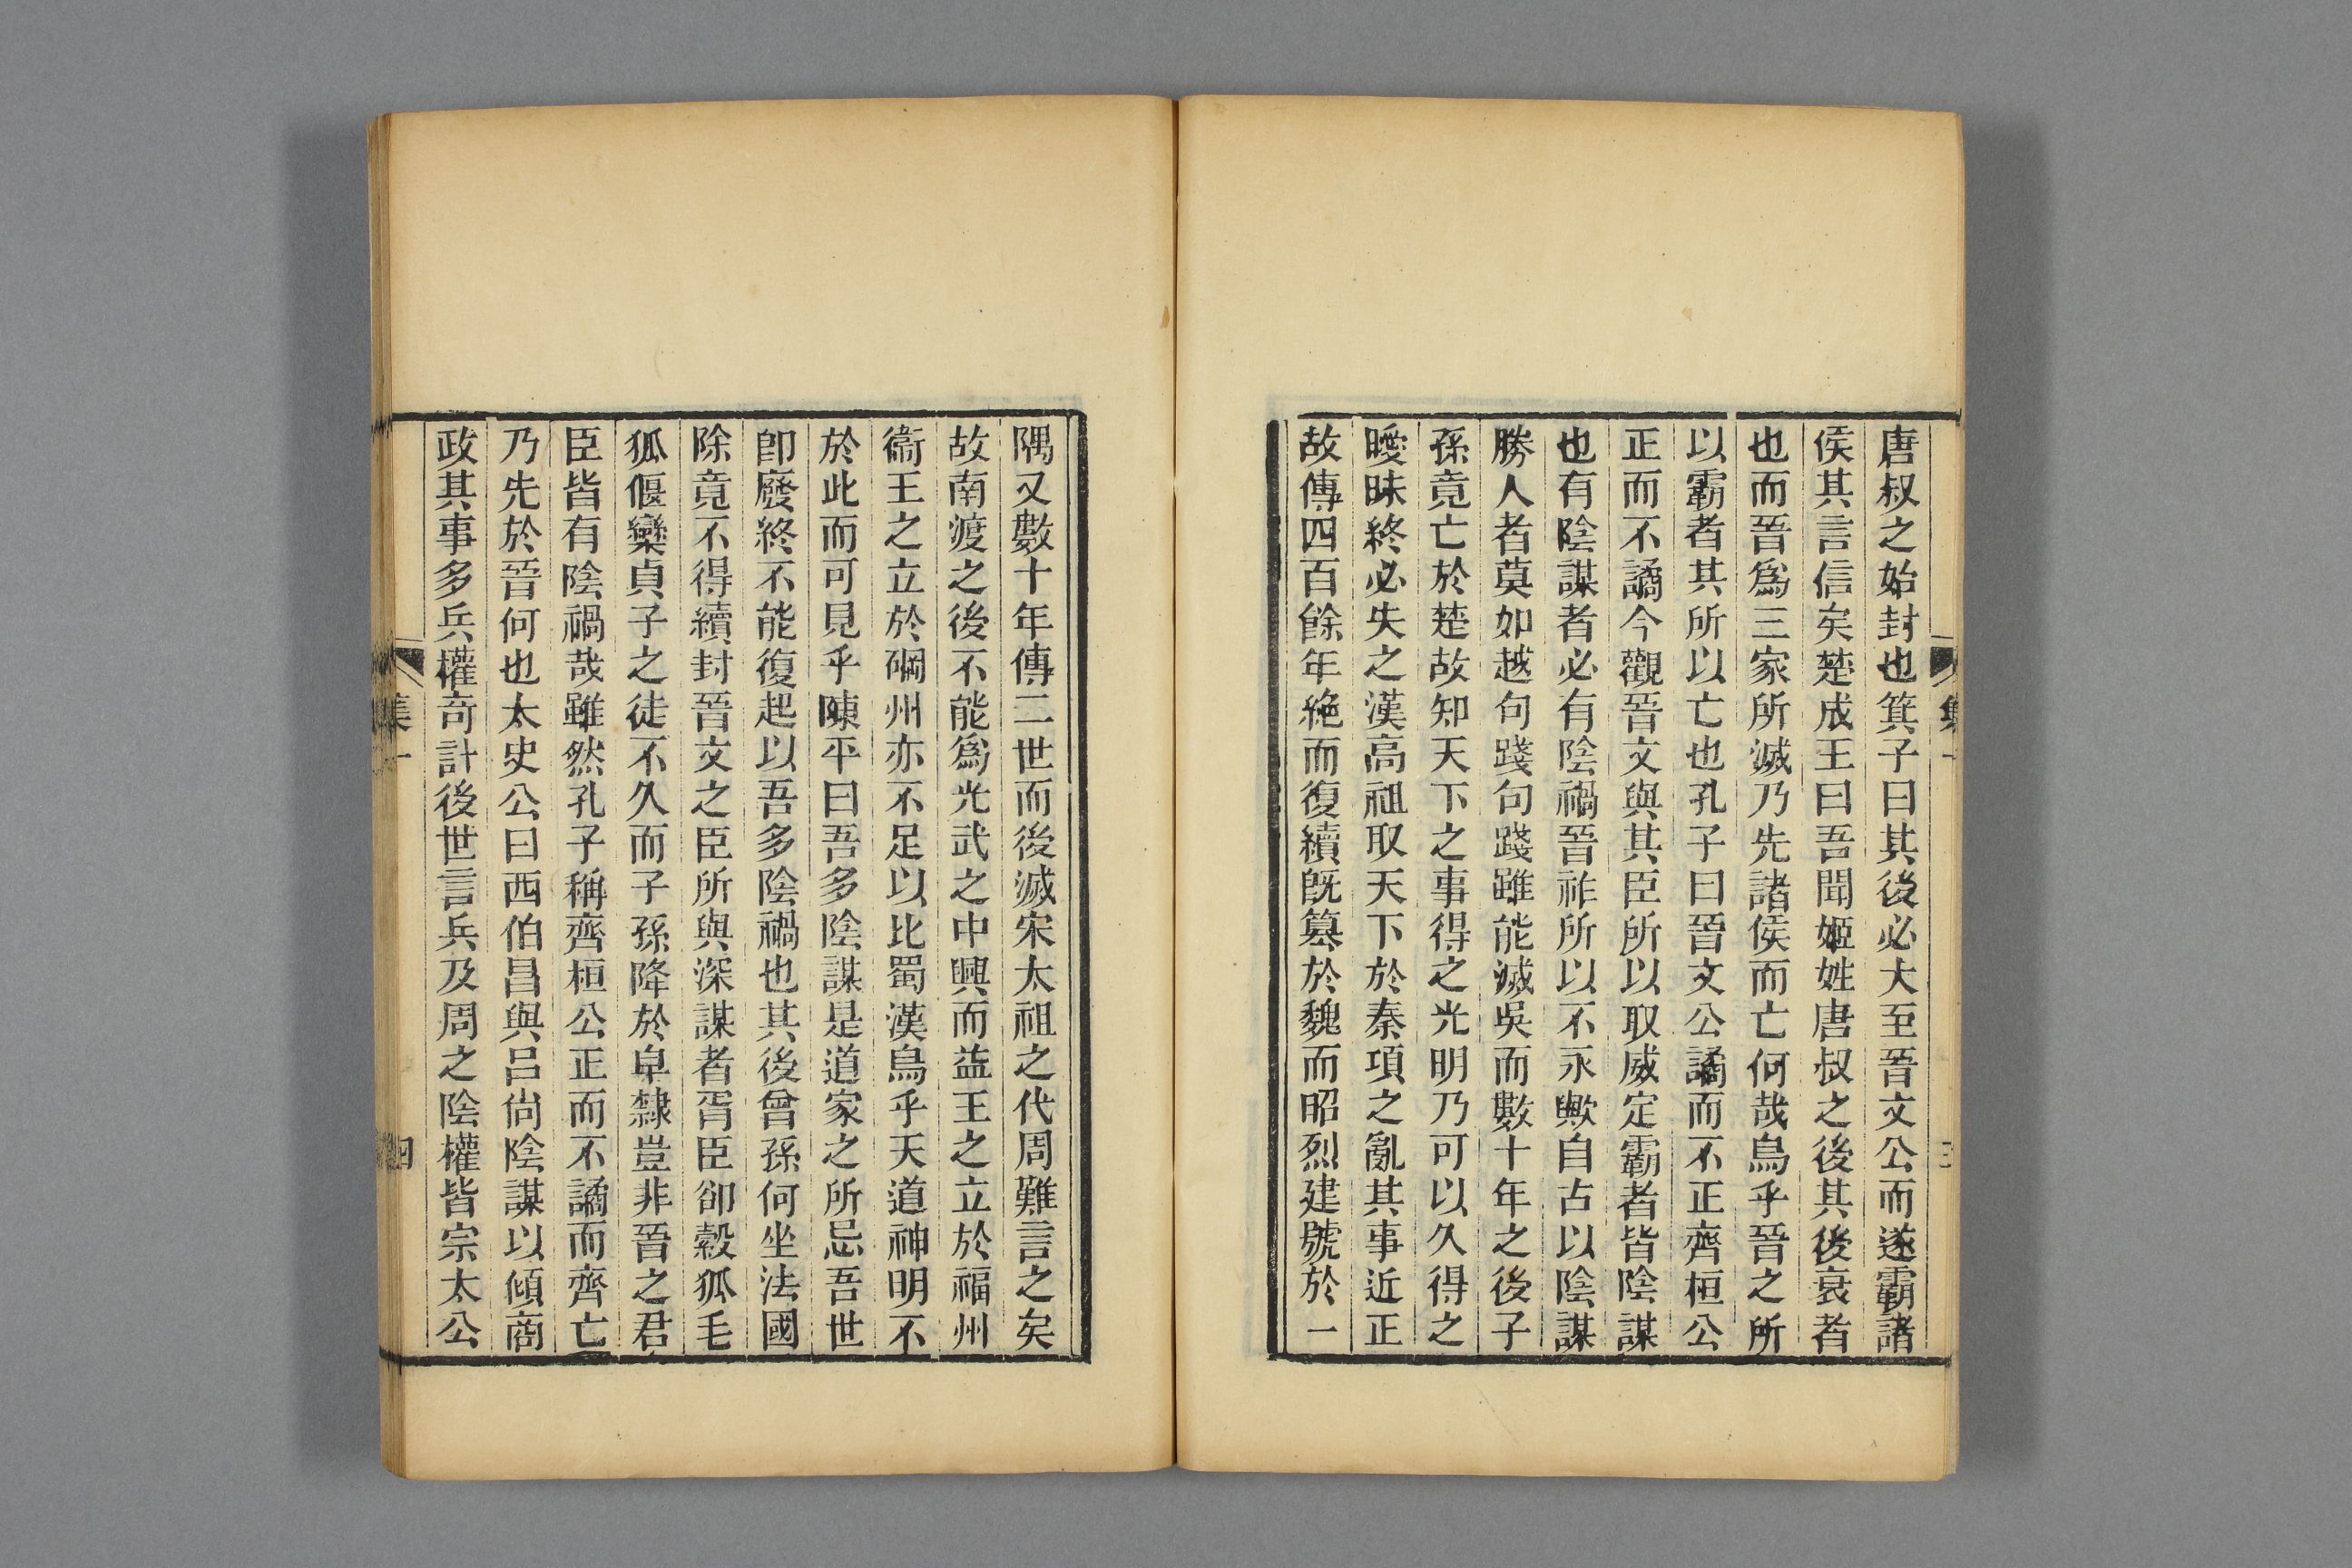 集一
三
唐叔之始封也箕子曰其後必大至晉文公而遂霸諸
侯其言信矣楚成王曰吾聞姬姓唐叔之後其後衰者
也而晉爲三家所滅乃先諸侯而亡何哉烏乎晉之所
以霸者其所以亡也孔子曰晉文公譎而不正齊桓公
正而不譎今觀晉文與其臣所以取威定霸者皆陰謀
也有陰謀者必有陰禍晉祚所以不永歟自古以陰謀
勝人者莫如越句踐句踐雖能滅吳而數十年之後子
孫竟亡於楚故知天下之事得之光明乃可以久得之
曖昧終必失之漢高祖取天下於秦項之亂其事近正
故傳四百餘年絶而復續旣篡於魏而昭烈建號於一
隅又數十年傳二世而後滅宋太祖之代周難言之矣
故南渡之後不能爲光武之中興而益王之立於福州
衞王之立於碙州亦不足以比蜀漢烏乎天道神明不
於此而可見乎陳平曰吾多陰謀是道家之所忌吾世
卽廢終不能復起以吾多陰禍也其後曾孫何坐法國
除竟不得續封晉文之臣所與深謀者胥臣卻縠狐毛
狐偃欒貞子之徒不久而子孫降於皁隸豈非晉之君
臣皆有陰禍哉雖然孔子稱齊桓公正而不譎而齊亡
乃先於晉何也太史公曰西伯昌與呂尙陰謀以傾商
政其事多兵權奇計後世言兵及周之陰權皆宗太公
集一
四